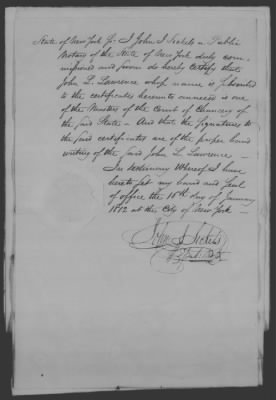 State of New York ss. I John I Sickels a Public
Notary of the State of New York duly com
missioned and sworn do hereby certify that
John L. Lawrence whose name is subscribed
to the certificates hereunto annexed is one
of the Masters of the Court of Chancery of
the said State — And that the signatures to
the said certificates are of the proper hand
writing of the said John L Lawrence —
In testimony Whereof I have
hereto set my hand and seal
of office the 15th day of January
1812 at the City of New York —
John I Sickels